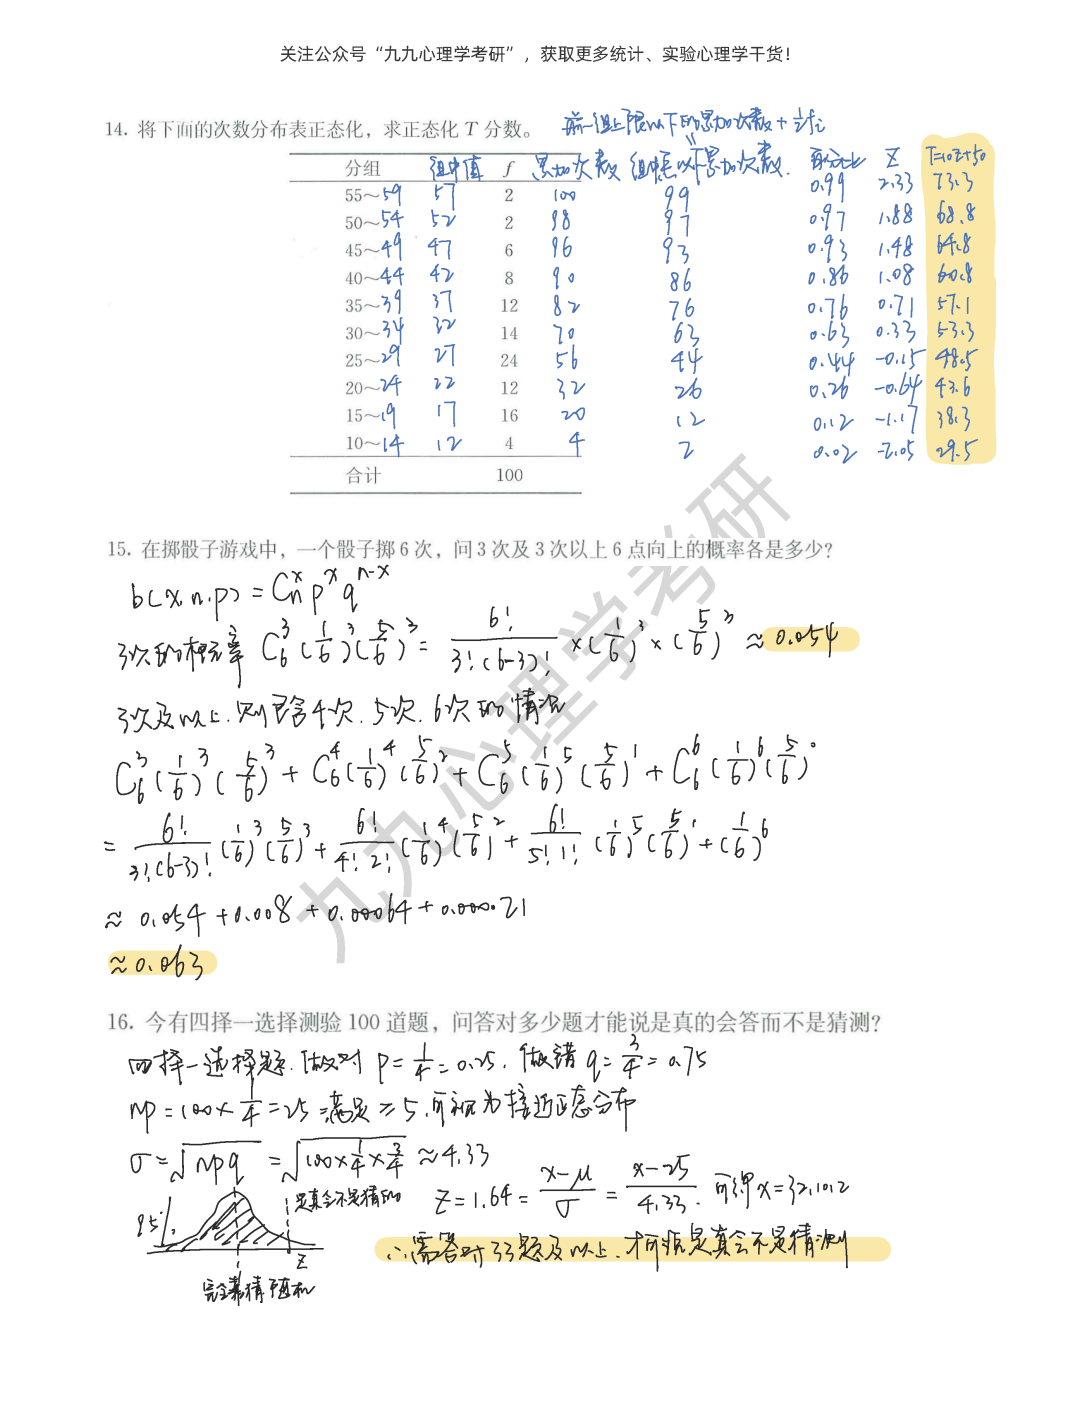 关注公众号“九九心理学考研”，获取更多统计、实验心理学干货！
14. 将下面的次数分布表正态化，求正态化 T 分数。 前一组上限以下的累加次数 + ½fi
分组 组中值 f 累加次数 组中点以下累加次数. 百分比 Z T=10Z+50
55~59 57 2 100 99 0.99 2.33 73.3
50~54 52 2 98 97 0.97 1.88 68.8
45~49 47 6 96 93 0.93 1.48 64.8
40~44 42 8 90 86 0.86 1.08 60.8
35~39 37 12 82 76 0.76 0.71 57.1
30~34 32 14 70 63 0.63 0.33 53.3
25~29 27 24 56 44 0.44 -0.15 48.5
20~24 22 12 32 26 0.26 -0.64 43.6
15~19 17 16 20 12 0.12 -1.17 38.3
10~14 12 4 4 2 0.02 -2.05 29.5
合计 100
15. 在掷骰子游戏中，一个骰子掷 6 次，问 3 次及 3 次以上 6 点向上的概率各是多少？
b(x.n.p) = C_n^x p^x q^(n-x)
3次的概率 C_6^3 (1/6)^3 (5/6)^3 = 6!/(3!(6-3)!) × (1/6)^3 × (5/6)^3 ≈ 0.054
3次及以上. 则包含4次. 5次. 6次的情况
C_6^3 (1/6)^3 (5/6)^3 + C_6^4 (1/6)^4 (5/6)^2 + C_6^5 (1/6)^5 (5/6)^1 + C_6^6 (1/6)^6 (5/6)^0
= 6!/(3!(6-3)!) (1/6)^3 (5/6)^3 + 6!/(4!2!) (1/6)^4 (5/6)^2 + 6!/(5!1!) (1/6)^5 (5/6)^1 + (1/6)^6
≈ 0.054 + 0.008 + 0.00064 + 0.000021
≈ 0.063
16. 今有四择一选择测验 100 道题，问答对多少题才能说是真的会答而不是猜测？
四择一选择题. 做对 p = 1/4 = 0.25. 做错 q = 3/4 = 0.75
np = 100 × 1/4 = 25 满足 ≥ 5. 可视为接近正态分布
σ = √npq = √(100×1/4×3/4) ≈ 4.33
Z = 1.64 = (x-μ)/σ = (x-25)/4.33. 可得 x = 32.1012
是真会不是猜的
95%
Z
完全靠猜 随机
∴ 需答对33题及以上. 才可说是真会不是猜测
九九心理学考研